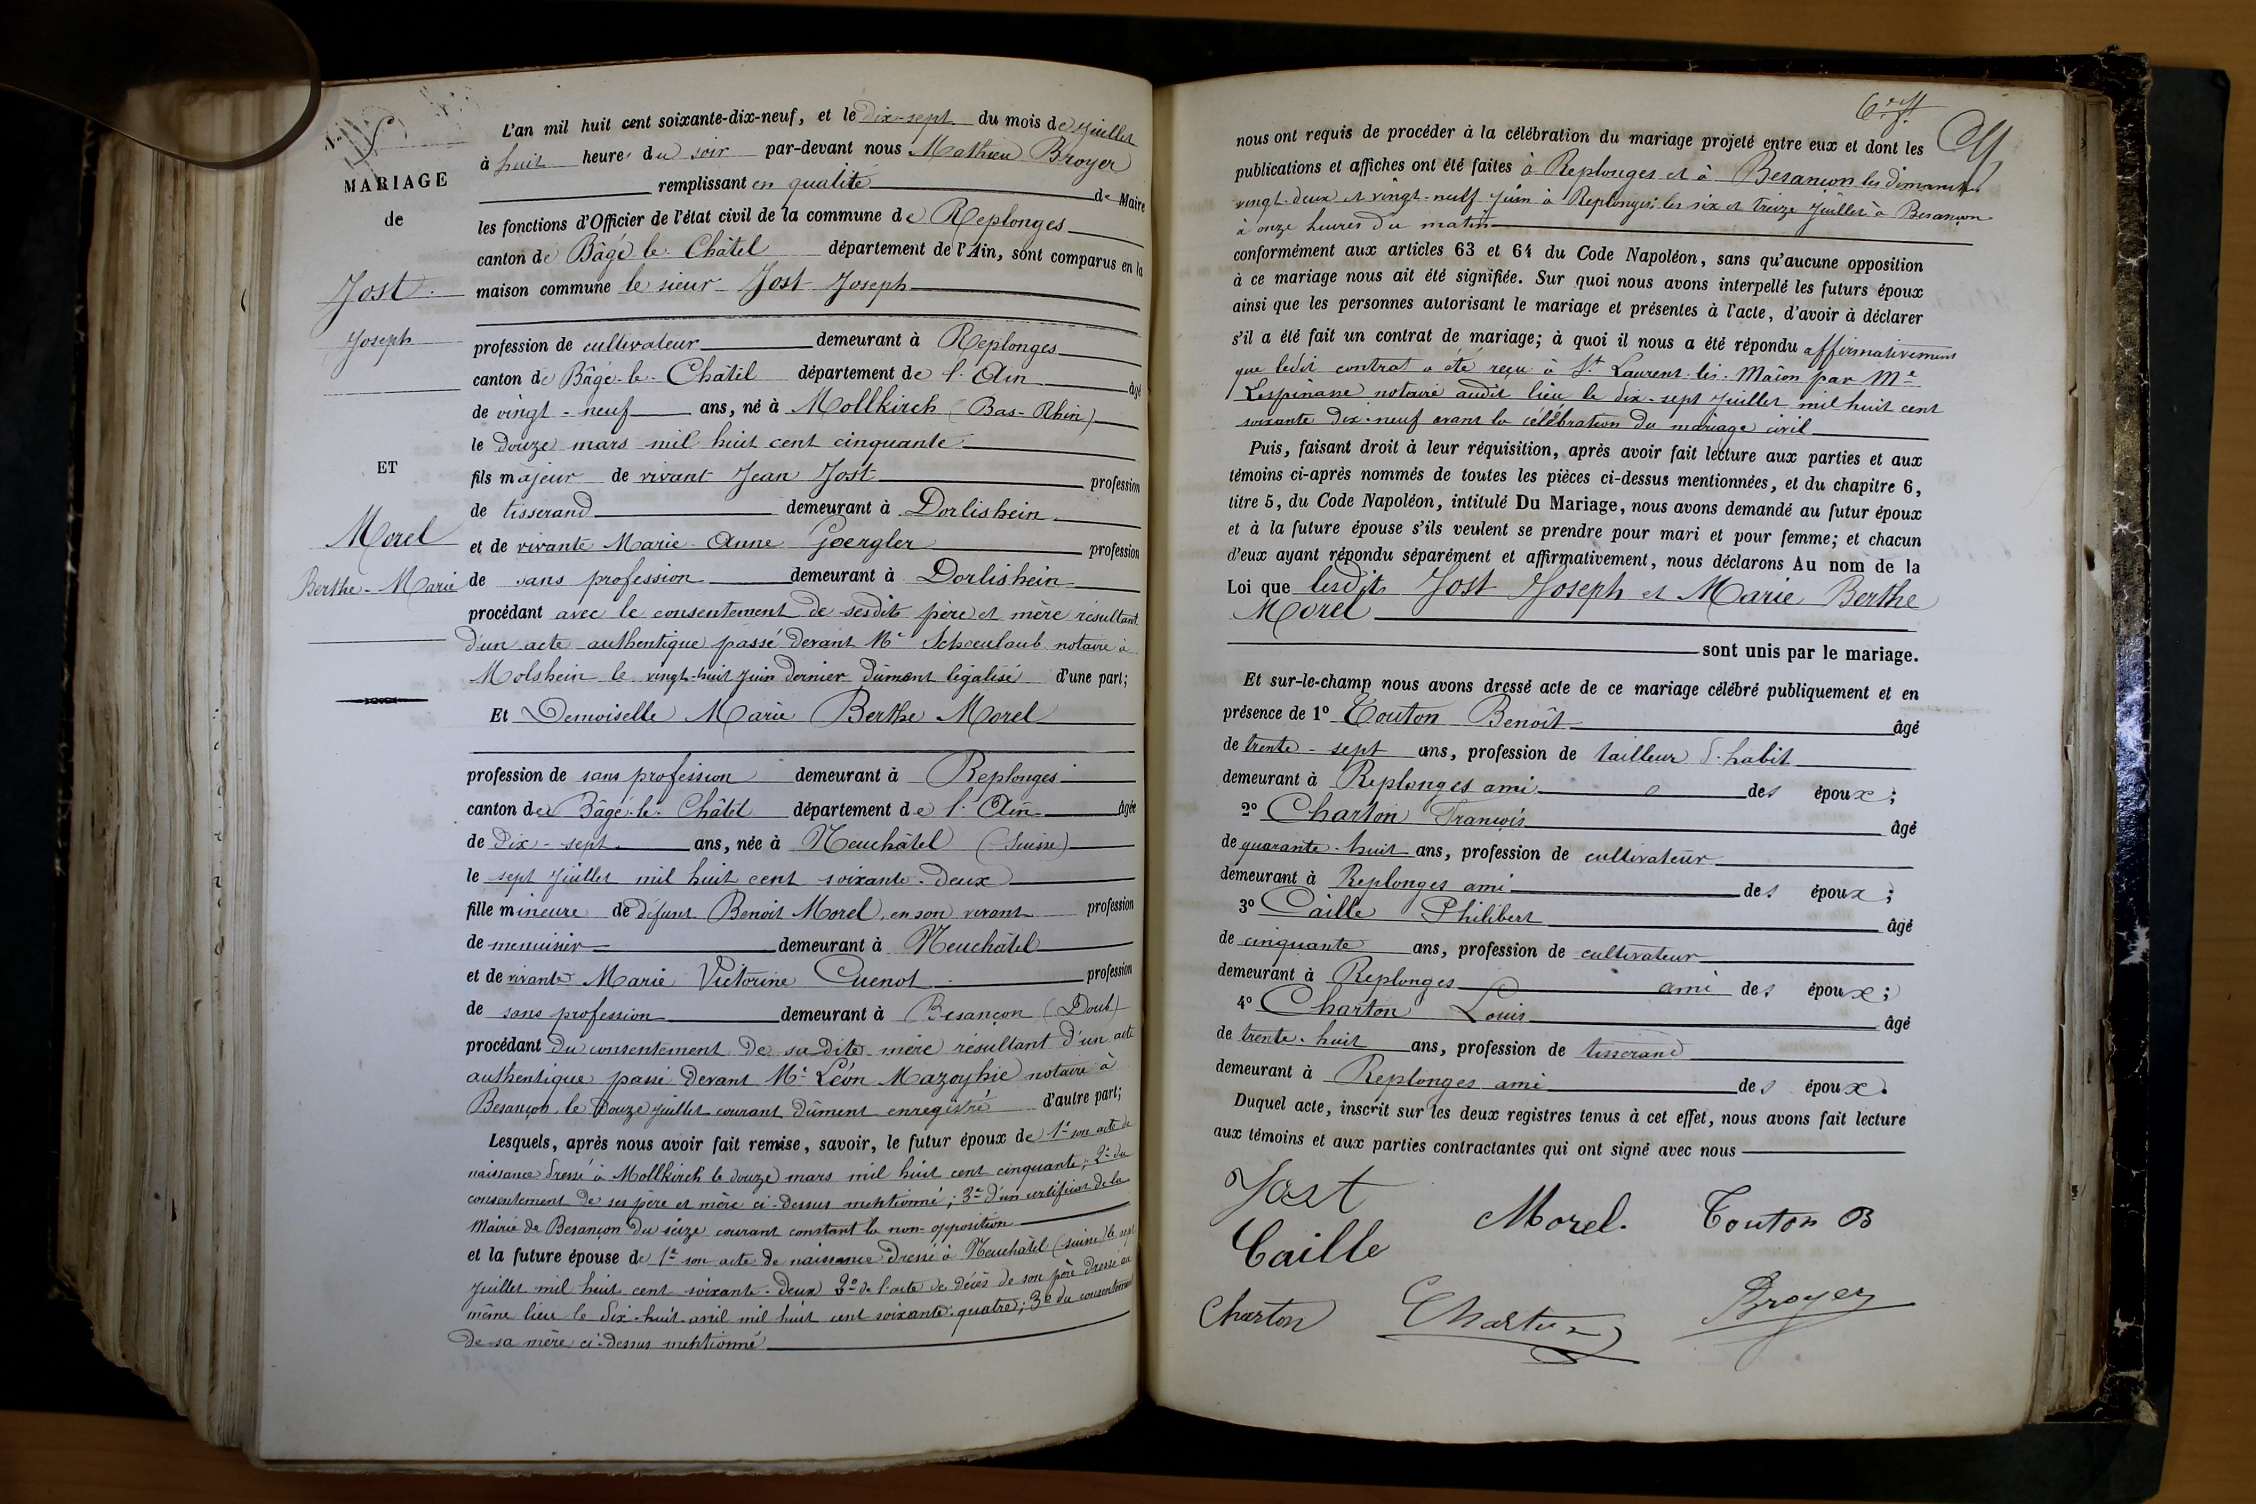 MARIAGE
de
Jost
Joseph
ET
Morel
Berthe-Marie
L'an mil huit cent soixante-dix-neuf, et le dix-sept du mois de Juillet
à huit heures du soir par-devant nous Mathieu Broyer
remplissant en qualité de Maire
les fonctions d'Officier de l'état civil de la commune de Replonges
canton de Bâgé-le-Châtel département de l'Ain, sont comparus en la
maison commune le sieur Jost Joseph
profession de cultivateur demeurant à Replonges
canton de Bâgé-le-Châtel département de l'Ain âgé
de vingt-neuf ans, né à Mollkirch (Bas-Rhin)
le douze mars mil huit cent cinquante
fils majeur de vivant Jean Jost profession
de tisserand demeurant à Dorlishein
et de vivante Marie-Anne Goergler profession
de sans profession demeurant à Dorlishein
procédant avec le consentement de sesdits père et mère résultant
d'un acte authentique passé devant Me notaire à
Molshein le vingt-huit Juin dernier dûment légalisé d'une part;
Et Demoiselle Marie Berthe Morel
profession de sans profession demeurant à Replonges
canton de Bâgé-le-Châtel département de l'Ain âgée
de dix-sept ans, née à Neuchâtel (Suisse)
le sept Juillet mil huit cent soixante-deux
fille mineure de défunt Benoit Morel, en son vivant profession
de menuisier demeurant à Neuchâtel
et de vivante Marie Victorine Cuenot profession
de sans profession demeurant à Besançon (Doub)
procédant du consentement de sa dite mère résultant d'un acte
authentique passé devant Me Léon Mazoyhie notaire à
Besançon, le douze Juillet courant dûment enregistré d'autre part;
Lesquels, après nous avoir fait remise, savoir, le futur époux de 1° son acte de
naissance dressé à Mollkirch le douze mars mil huit cent cinquante; 2° du
consentement de ses père et mère ci-dessus mentionné; 3° d'un certificat de la
Mairie de Besançon du seize courant constant la non-opposition
et la future épouse de 1° son acte de naissance dressé à Neuchâtel (suisse) le sept
Juillet mil huit cent soixante-deux 2° de l'acte de décès de son père dressé au
même lieu le dix-huit avril mil huit cent soixante-quatre; 3° du consentement
de sa mère ci-dessus mentionné
nous ont requis de procéder à la célébration du mariage projeté entre eux et dont les
publications et affiches ont été faites à Replonges et à Besançon les dimanches
vingt-deux et vingt-neuf Juin à Replonges; les six et treize Juillet à Besançon
à onze heures du matin
conformément aux articles 63 et 64 du Code Napoléon, sans qu'aucune opposition
à ce mariage nous ait été signifiée. Sur quoi nous avons interpellé les futurs époux
ainsi que les personnes autorisant le mariage et présentes à l'acte, d'avoir à déclarer
s'il a été fait un contrat de mariage; à quoi il nous a été répondu affirmativement
que ledit contrat a été reçu à St Laurent-lès-Mâcon par Me
Lespinasse notaire audit lieu le dix-sept Juillet mil huit cent
soixante dix-neuf avant la célébration du mariage civil
Puis, faisant droit à leur réquisition, après avoir fait lecture aux parties et aux
témoins ci-après nommés de toutes les pièces ci-dessus mentionnées, et du chapitre 6,
titre 5, du Code Napoléon, intitulé Du Mariage, nous avons demandé au futur époux
et à la future épouse s'ils veulent se prendre pour mari et pour femme; et chacun
d'eux ayant répondu séparément et affirmativement, nous déclarons Au nom de la
Loi que lesdits Jost Joseph et Marie Berthe
Morel
sont unis par le mariage.
Et sur-le-champ nous avons dressé acte de ce mariage célébré publiquement et en
présence de 1° Touton Benoît âgé
de trente-sept ans, profession de tailleur d'habit
demeurant à Replonges ami des époux;
2° Charton François âgé
de quarante-huit ans, profession de cultivateur
demeurant à Replonges ami des époux;
3° Caille Philibert âgé
de cinquante ans, profession de cultivateur
demeurant à Replonges ami des époux;
4° Charton Louis âgé
de trente-huit ans, profession de tisserand
demeurant à Replonges ami des époux.
Duquel acte, inscrit sur les deux registres tenus à cet effet, nous avons fait lecture
aux témoins et aux parties contractantes qui ont signé avec nous
Jost
Morel. Touton B
Caille
Charton Charton Broyer